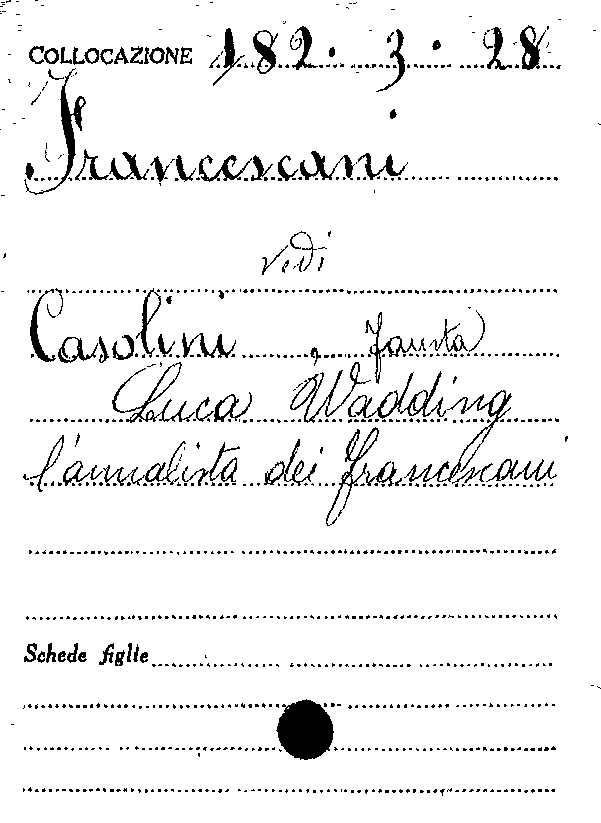 COLLOCAZIONE 182. 3. 28
Francescani
vedi
Casolini, Fausta
Luca Wadding
l'annalista dei francescani
Schede figlie